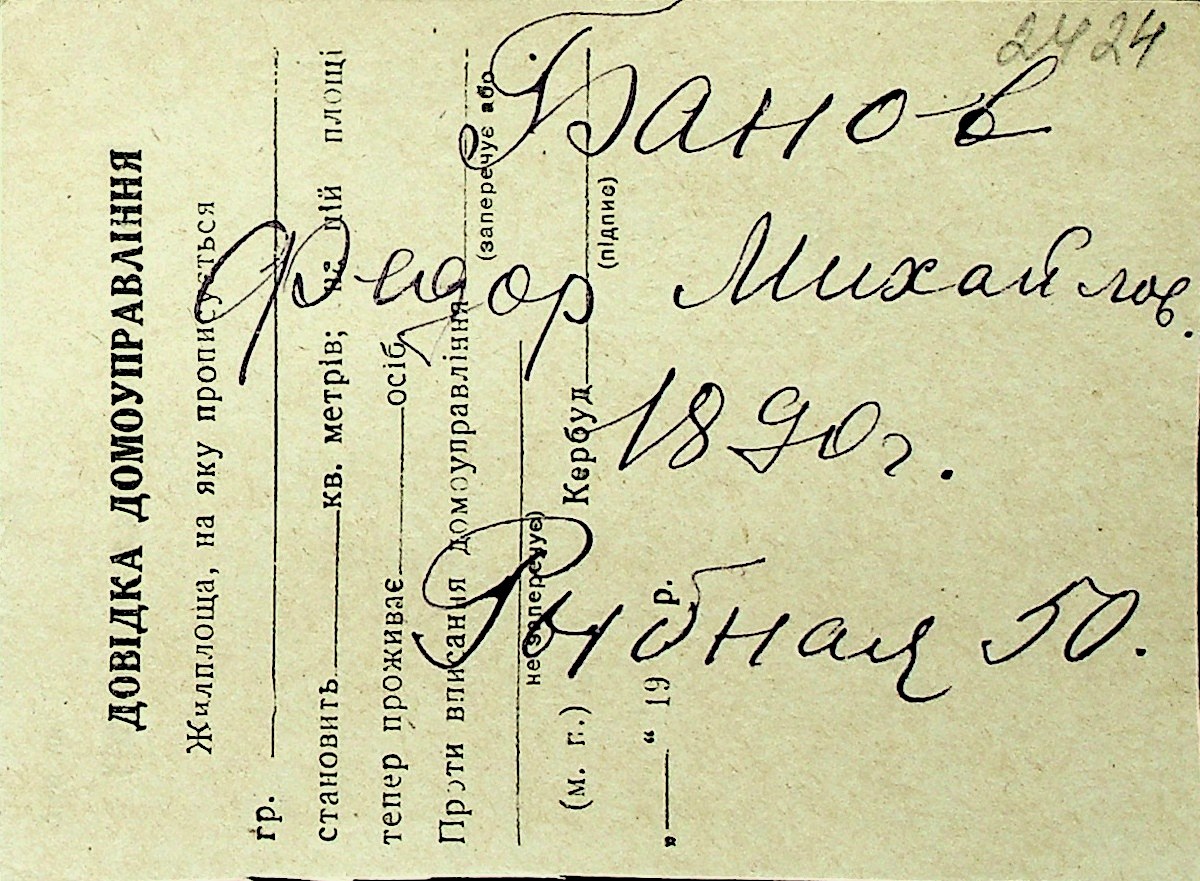 2424
Банов
Федор Михайлов.
1890 г.
Рыбная 50.
ДОВІДКА ДОМОУПРАВЛІННЯ
Жилплоща, на яку прописується
гр.
становить кв. метрів; на цій площі
тепер проживає осіб
Проти вписання домоуправління
(заперечує або
не заперечує)
(м. п.) Кербуд
(підпис)
„ “ 19 р.